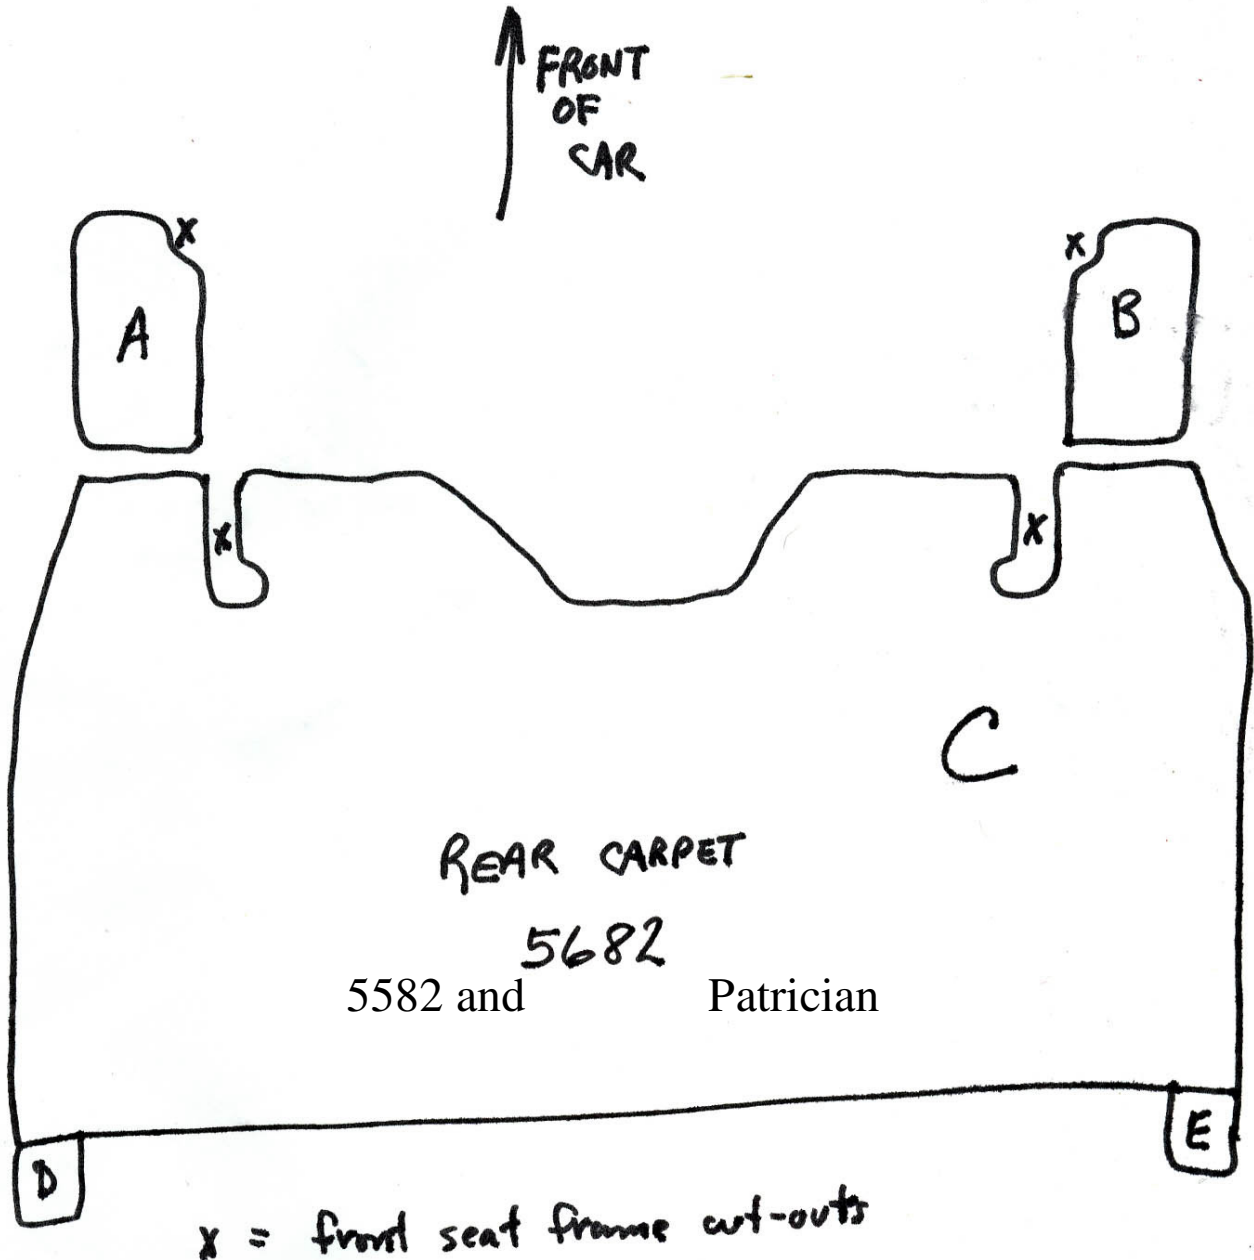 FRONT
OF
CAR
x
x
A
B
x
x
C
REAR CARPET
5682
5582 and Patrician
D
E
x = front seat frame cut-outs